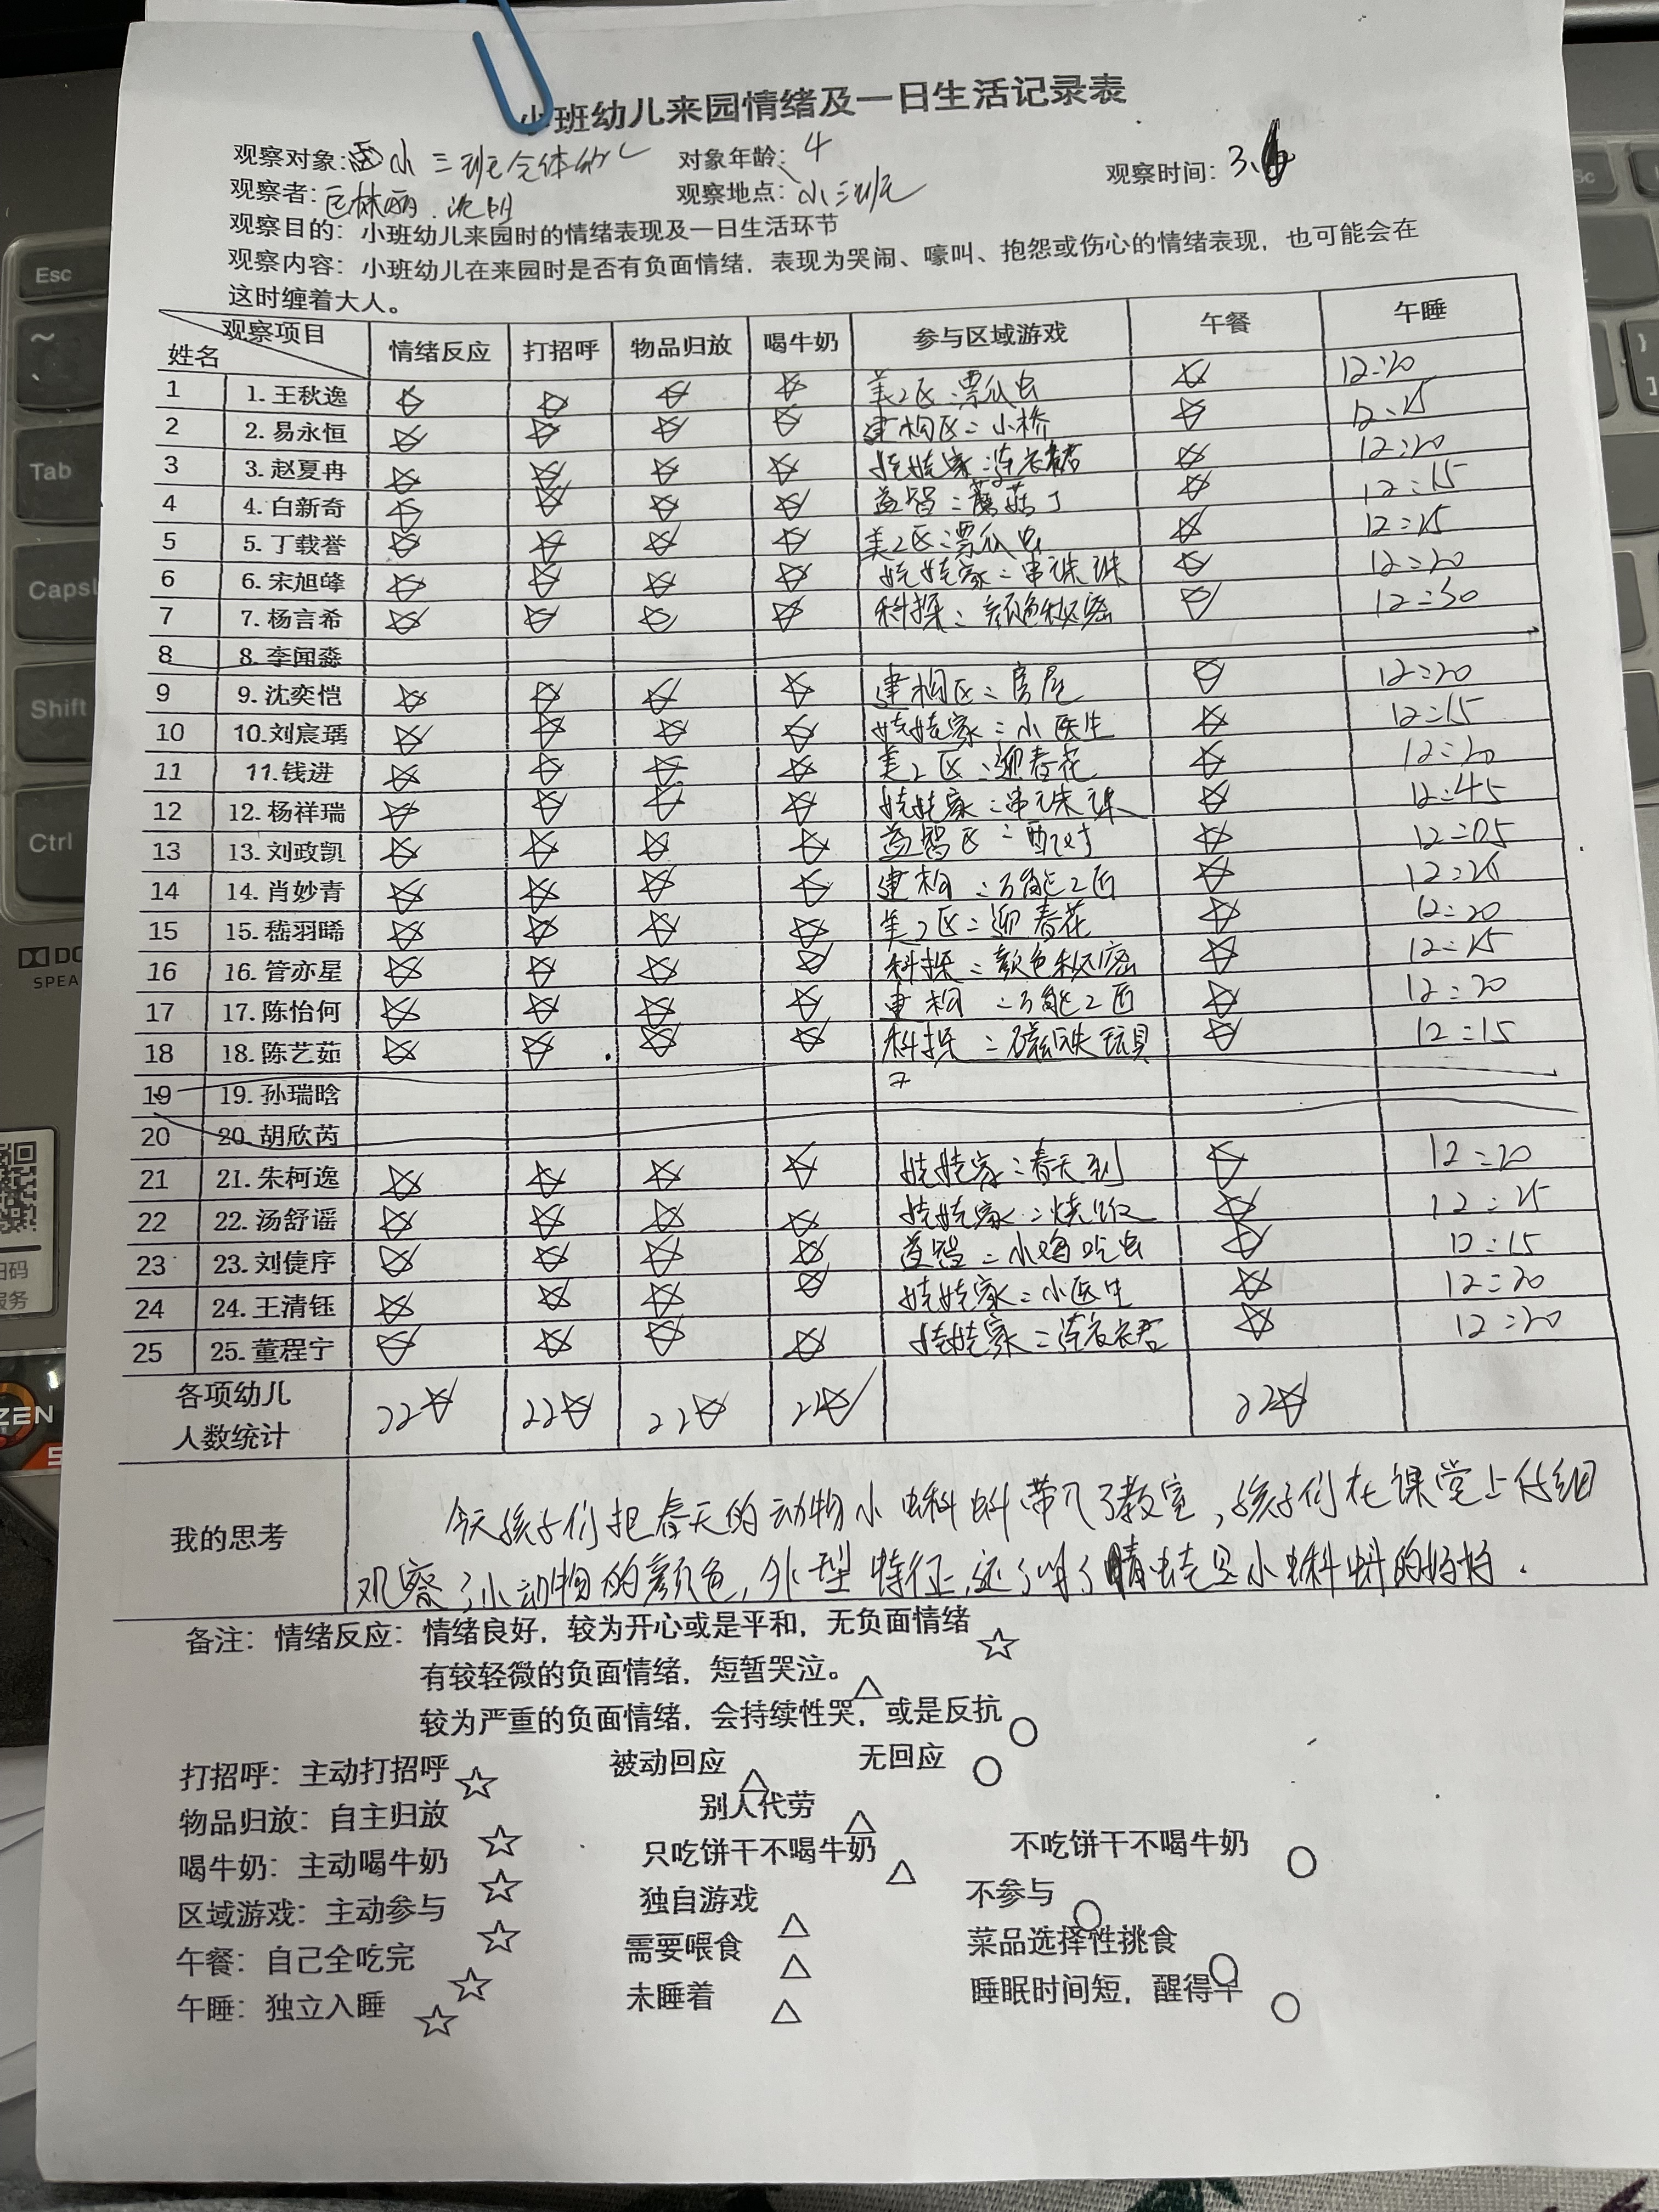 小班幼儿来园情绪及一日生活记录表
观察对象:小三班全体幼儿 对象年龄:4 观察时间:3.
观察者: 观察地点:小三班
观察目的:小班幼儿来园时的情绪表现及一日生活环节
观察内容:小班幼儿在来园时是否有负面情绪,表现为哭闹、嚎叫、抱怨或伤心的情绪表现,也可能会在
这时缠着大人。
观察项目 姓名 情绪反应 打招呼 物品归放 喝牛奶 参与区域游戏 午餐 午睡
1 1.王秋逸 ☆ ☆ ☆ ☆ 美工区:瓢虫 ☆ 12:20
2 2.易永恒 ☆ ☆ ☆ ☆ 建构区:小桥 ☆ 12:15
3 3.赵夏冉 ☆ ☆ ☆ ☆ 娃娃家:连衣裙 ☆ 12:20
4 4.白新奇 ☆ ☆ ☆ ☆ 益智:蘑菇丁 ☆ 12:15
5 5.丁载誉 ☆ ☆ ☆ ☆ 美工区:瓢虫 ☆ 12:15
6 6.宋旭峰 ☆ ☆ ☆ ☆ 娃娃家:串珠珠 ☆ 12:20
7 7.杨言希 ☆ ☆ ☆ ☆ 科探:颜色秘密 ☆ 12:30
8 8.李闻淼
9 9.沈奕恺 ☆ ☆ ☆ ☆ 建构区:房屋 ☆ 12:20
10 10.刘宸瑀 ☆ ☆ ☆ ☆ 娃娃家:小医生 ☆ 12:15
11 11.钱进 ☆ ☆ ☆ ☆ 美工区:迎春花 ☆ 12:20
12 12.杨祥瑞 ☆ ☆ ☆ ☆ 娃娃家:串珠珠 ☆ 12:45
13 13.刘政凯 ☆ ☆ ☆ ☆ 益智区:配对 ☆ 12:05
14 14.肖妙青 ☆ ☆ ☆ ☆ 建构:万能工匠 ☆ 12:
15 15.嵇羽晞 ☆ ☆ ☆ ☆ 美工区:迎春花 ☆ 12:20
16 16.管亦星 ☆ ☆ ☆ ☆ 科探:颜色秘密 ☆ 12:15
17 17.陈怡何 ☆ ☆ ☆ ☆ 建构:万能工匠 ☆ 12:20
18 18.陈艺茹 ☆ ☆ ☆ ☆ 科探:磁铁玩具 ☆ 12:15
19 19.孙瑞晗
20 20.胡欣芮
21 21.朱柯逸 ☆ ☆ ☆ ☆ 娃娃家:春天到 ☆ 12:20
22 22.汤舒谣 ☆ ☆ ☆ ☆ 娃娃家:烧饭 ☆ 12:15
23 23.刘倢序 ☆ ☆ ☆ ☆ 益智:小鸡吃虫 ☆ 12:15
24 24.王清钰 ☆ ☆ ☆ ☆ 娃娃家:小医生 ☆ 12:20
25 25.董程宁 ☆ ☆ ☆ ☆ 娃娃家:连衣裙 ☆ 12:20
各项幼儿
人数统计 22☆ 22☆ 22☆ 22☆ 22☆
我的思考
今天孩子们把春天的动物小蝌蚪带入了教室,孩子们在课堂上仔细
观察了小动物的颜色,外型特征,还了解了蜻蜓是小蝌蚪的好
备注:情绪反应:情绪良好,较为开心或是平和,无负面情绪 ☆
有较轻微的负面情绪,短暂哭泣。△
较为严重的负面情绪,会持续性哭,或是反抗 ○
打招呼:主动打招呼 ☆ 被动回应 △ 无回应 ○
物品归放:自主归放 ☆ 别人代劳 △
喝牛奶:主动喝牛奶 ☆ 只吃饼干不喝牛奶 △ 不吃饼干不喝牛奶 ○
区域游戏:主动参与 ☆ 独自游戏 △ 不参与 ○
午餐:自己全吃完 ☆ 需要喂食 △ 菜品选择性挑食 ○
午睡:独立入睡 ☆ 未睡着 △ 睡眠时间短,醒得早 ○
Esc
Tab
Shift
Ctrl